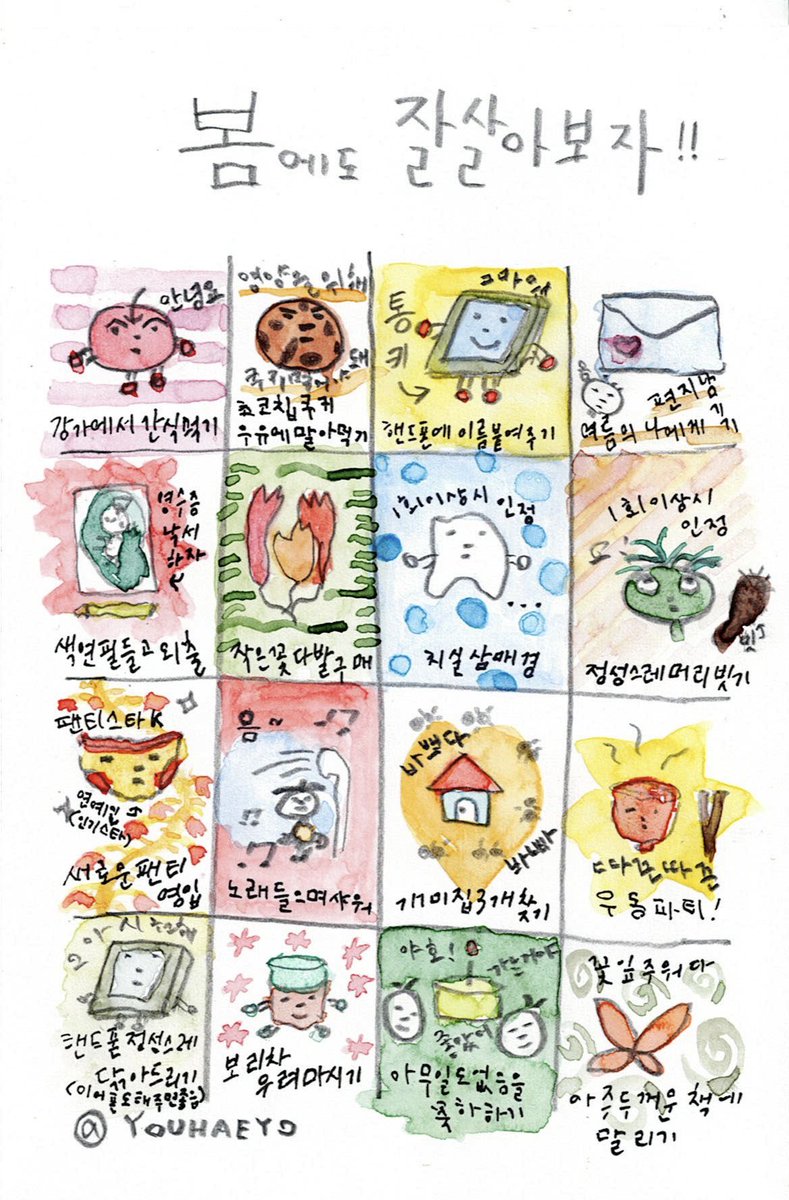 봄에도 잘살아보자!!
안녕요
강가에서 간식먹기
영양을 위해
초코칩쿠키
우유에 말아먹기
통
키
핸드폰에 이름붙여주기
편지남기기
여름의 나에게
영수증
낙서
하자
색연필들고 외출
작은꽃다발구매
1회이상시 인정
치실삼매경
...
1회이상시
인정
빗
정성스레머리빗기
팬티스타K
연예인
(인기스타)
새로운팬티
영입
음~
노래들으며샤워
바쁘다
바빠
개미집3개찾기
따끈따끈
우동파티!
핸드폰정성스레
닦아드리기
(이어폰도해주면좋음)
보리차
우려마시기
야호!
아무일도없음을
축하하기
꽃잎주워다
아주두꺼운책에
말리기
@YOUHAEYO